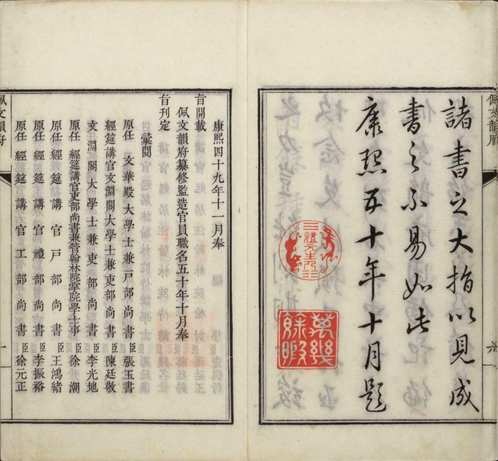 佩文韻府
諸書之大指以見成
書之不易如此
康熙五十年十月題
萬幾餘暇
康熙四十九年十一月奉
旨開載
佩文韻府纂修監造官員職名五十年十月奉
旨刊定
彙閱
原任文華殿大學士兼戶部尚書臣張玉書
經筵講官文淵閣大學士兼吏部尚書臣陳廷敬
文淵閣大學士兼吏部尚書臣李光地
原任經筵講官吏部尚書兼管翰林院掌院學士事臣徐潮
原任經筵講官戶部尚書臣王鴻緒
原任經筵講官禮部尚書臣李振裕
原任經筵講官工部尚書臣徐元正
佩文韻府